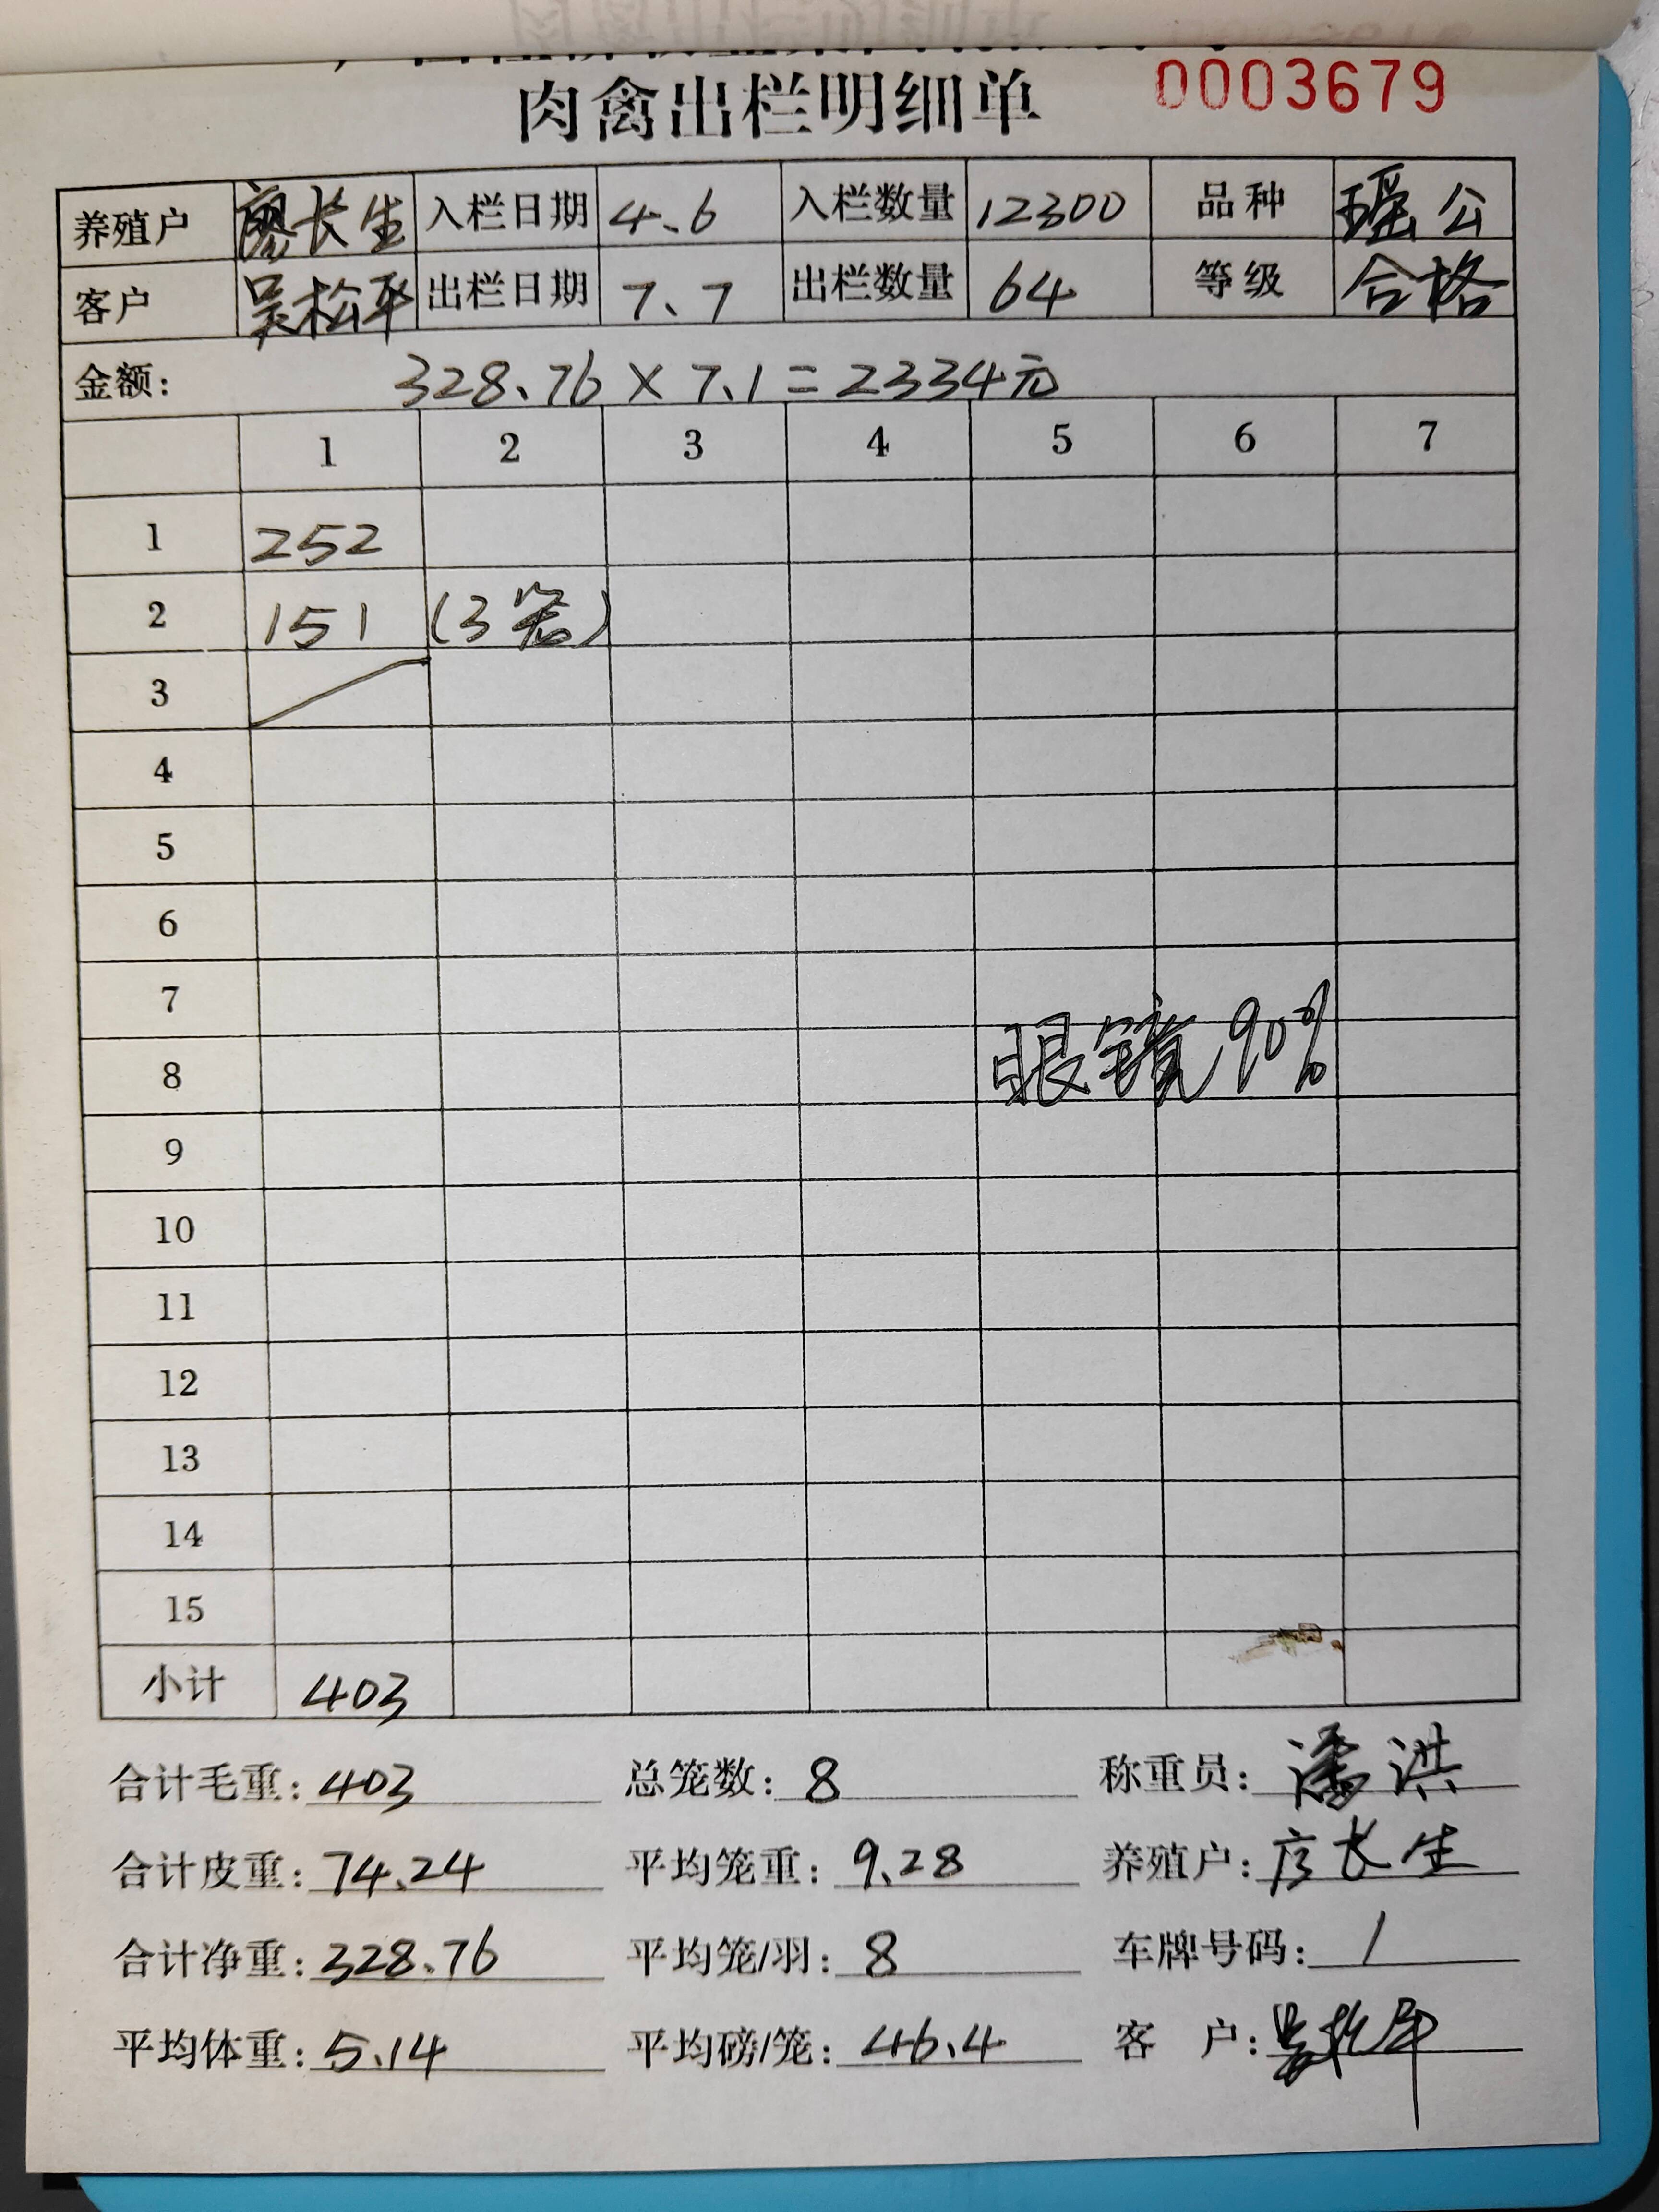 肉禽出栏明细单 0003679
养殖户 廖长生 入栏日期 4.6 入栏数量 12300 品种 瑶公
客户 吴松平 出栏日期 7.7 出栏数量 64 等级 合格
金额: 328.76 × 7.1 = 2334元
1 2 3 4 5 6 7
1 252
2 151 (3笼)
3
4
5
6
7
8 眼镜90%
9
10
11
12
13
14
15
小计 403
合计毛重: 403 总笼数: 8 称重员: 潘洪
合计皮重: 74.24 平均笼重: 9.28 养殖户: 廖长生
合计净重: 328.76 平均笼/羽: 8 车牌号码: 1
平均体重: 5.14 平均磅/笼: 46.4 客 户: 吴松平